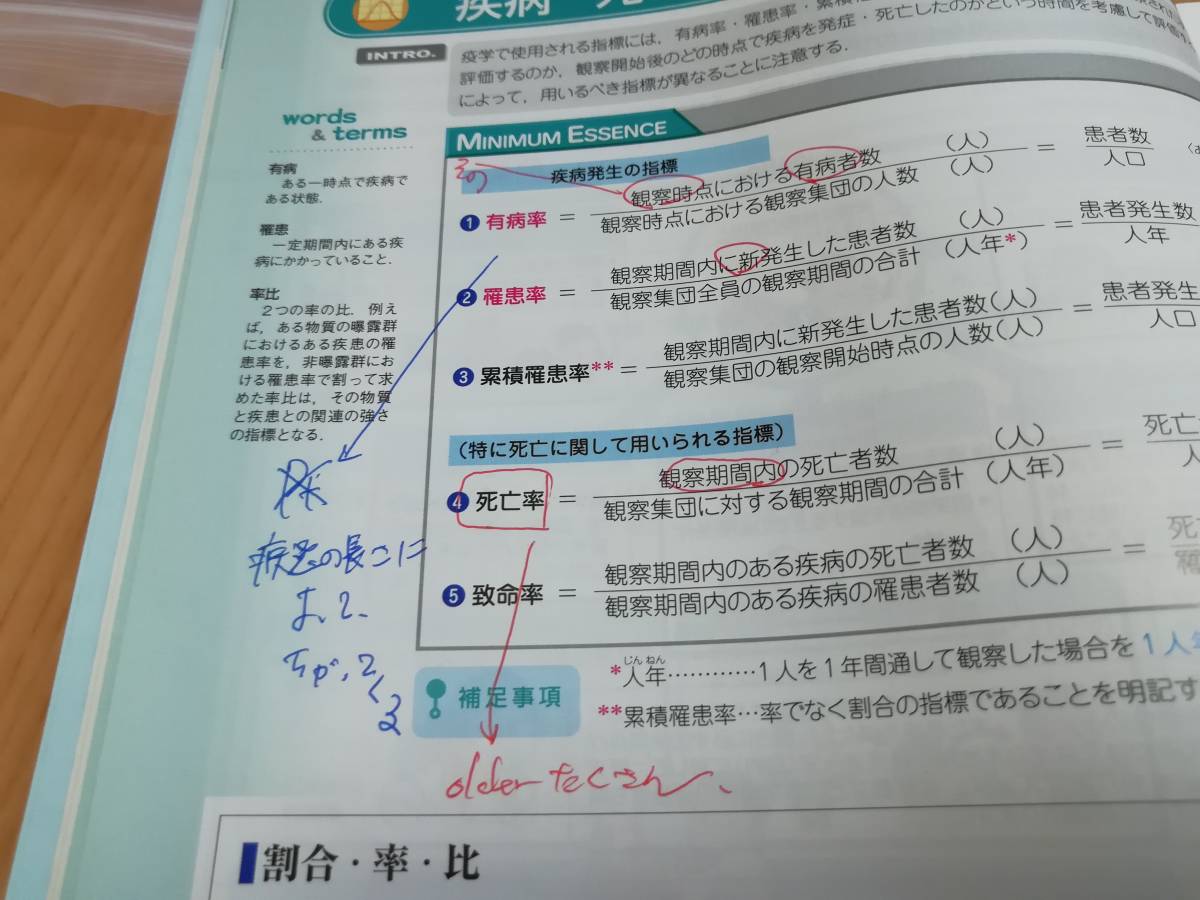 疾病
INTRO.
疫学で使用される指標には，有病率・罹患率・累積
発症・死亡したのかという時間を考慮して評価
評価するのか，観察開始後のどの時点で疾病を
によって，用いるべき指標が異なることに注意する．
words
& terms
有病
ある一時点で疾病で
ある状態．
罹患
一定期間内にある疾
病にかかっていること．
率比
2つの率の比．例え
ば，ある物質の曝露群
におけるある疾患の罹
患率を，非曝露群にお
ける罹患率で割って求
めた率比は，その物質
と疾患との関連の強さ
の指標となる．
MINIMUM ESSENCE
その
疾病発生の指標
❶ 有病率 =
観察時点における有病者数 (人)
観察時点における観察集団の人数 (人)
= 患者数
人口
❷ 罹患率 =
観察期間内に新発生した患者数 (人)
観察集団全員の観察期間の合計 (人年*)
= 患者発生数
人年
❸ 累積罹患率** =
観察期間内に新発生した患者数(人)
観察集団の観察開始時点の人数(人)
= 患者発生
人口
(特に死亡に関して用いられる指標)
❹ 死亡率 =
観察期間内の死亡者数 (人)
観察集団に対する観察期間の合計 (人年)
= 死亡
人
❺ 致命率 =
観察期間内のある疾病の死亡者数 (人)
観察期間内のある疾病の罹患者数 (人)
= 死
罹
の長さに
よって、
ちがってくる
補足事項
じんねん
*人年…………1人を1年間通して観察した場合を1人年
**累積罹患率…率でなく割合の指標であることを明記す
older たくさん、
割合・率・比